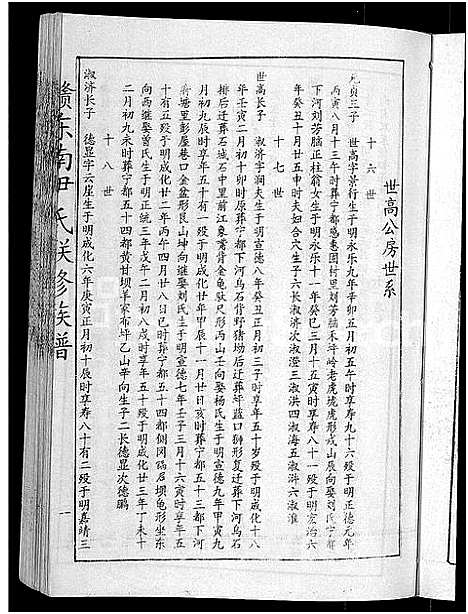 世高公房世系
十六世
元贞三子　世高字景衍生于明永乐九年辛卯五月初五午时享寿九十六殁于明正德元年
丙寅八月十三年时葬宁都鸡卷团村里刘芳脑老虎塘虎形戌山辰向娶刘氏宁都
下河刘芳脑正柱翁女生于明永乐十一年癸巳三月十五寅时享寿八十一殁于明宏治六
年癸丑十月廿五申时夫妇合穴生子六长淑济次淑澄三淑洪四淑海五淑浒六淑淮
十七世
世高长子　淑济字润夫生于明宣德八年癸丑正月初三子时享年五十岁殁于明成化十八
年壬寅二月初十卯时原葬宁都下河乌石背野猪场后迁葬年蓝口狮形复迁葬下河乌石
排后迁葬石城石中里前江象嘴背金龟驮尺形丙山壬向娶杨氏生于明宣德九年甲寅九
月初九辰时享年五十有一殁于明成化二十年甲辰十一月廿日亥时葬宁都五十三都下河
蒋塘里彭屋巷口金盆形艮山坤向继娶刘氏生于明宣德七年壬子三月十六寅时享年五
十有五殁于明成化廿二年丙午四月廿八日巳时葬宁都五十四都侧冈隔石坝龟形坐东
向西继娶曾氏生于明正统三年戊午二月初八戌时享年五十殁于明成化廿三年丁未十
二月初九未时葬宁都五十四都黄甘坝羊家布坪乙山辛向生子二长德显次德鹏
十八世
淑济长子　德显字云崖生于明成化六年庚寅正月初十辰时享寿八十有二殁于明嘉靖三
赣东南尹氏联修族谱
一